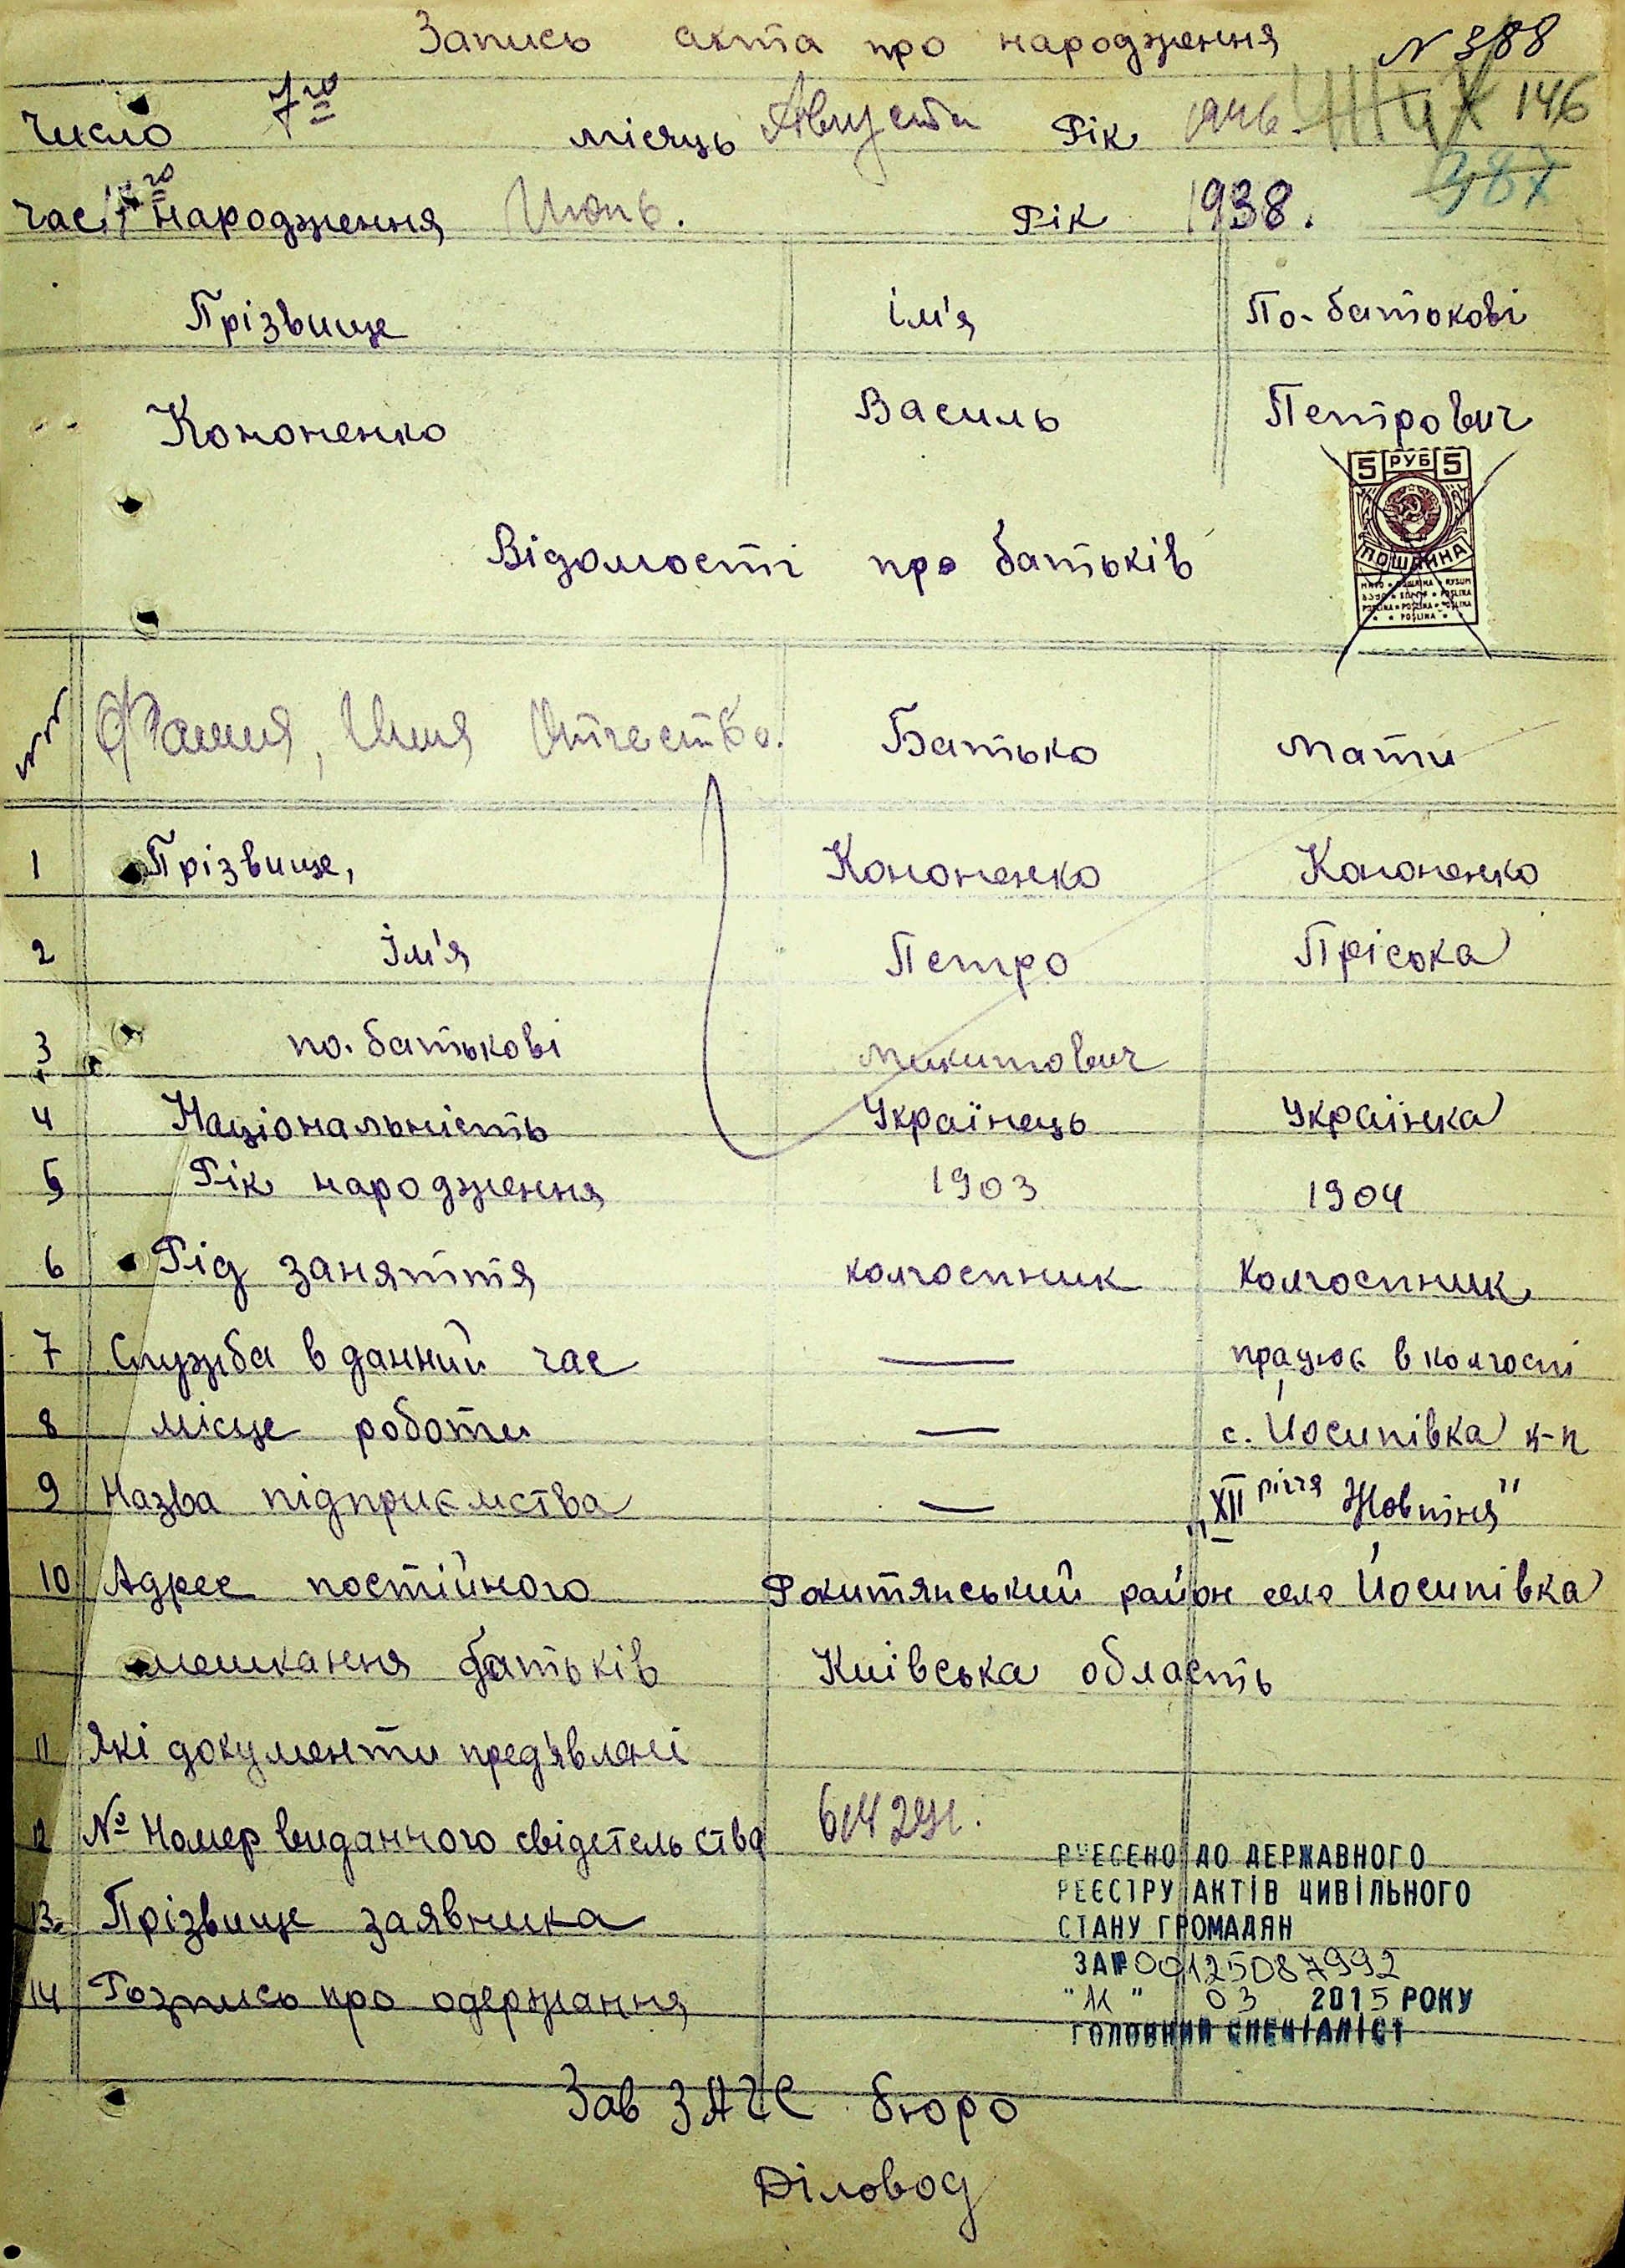 Запись акта про народження № 388
Число 7го місяць Август Рік 1946. 146
387
Час народження Июнь. Рік 1938.
Прізвище Ім'я По-батькові
Кононенко Василь Петрович
5 РУБ 5
ПОШЛИНА
Відомості про батьків
Фамия, Имя Отчество. Батько Мати
1 Прізвище, Кононенко Кононенко
2 Ім'я Петро Пріська
3 по-батькові Микитович
4 Національність Українець Українка
5 Рік народження 1903 1904
6 Рід заняття колгоспник колгоспник
7 Служба в данний час — працює в колгоспі
8 Місце роботи — с. Йосипівка к-п
9 Назва підприємства — „XII річчя Жовтня"
10 Адрес постійного Рокитянський район село Йосипівка
мешкання батьків Київська область
11 Які документи предявлені
12 № Номер виданного свідетельства
13. Прізвище заявника
14 Розпись про одержання
ВНЕСЕНО ДО ДЕРЖАВНОГО
РЕЄСТРУ АКТІВ ЦИВІЛЬНОГО
СТАНУ ГРОМАДЯН
ЗА№ 00125087992
"11" 03 2015 РОКУ
ГОЛОВНИЙ СПЕЦІАЛІСТ
Зав ЗАГС бюро
Діловод